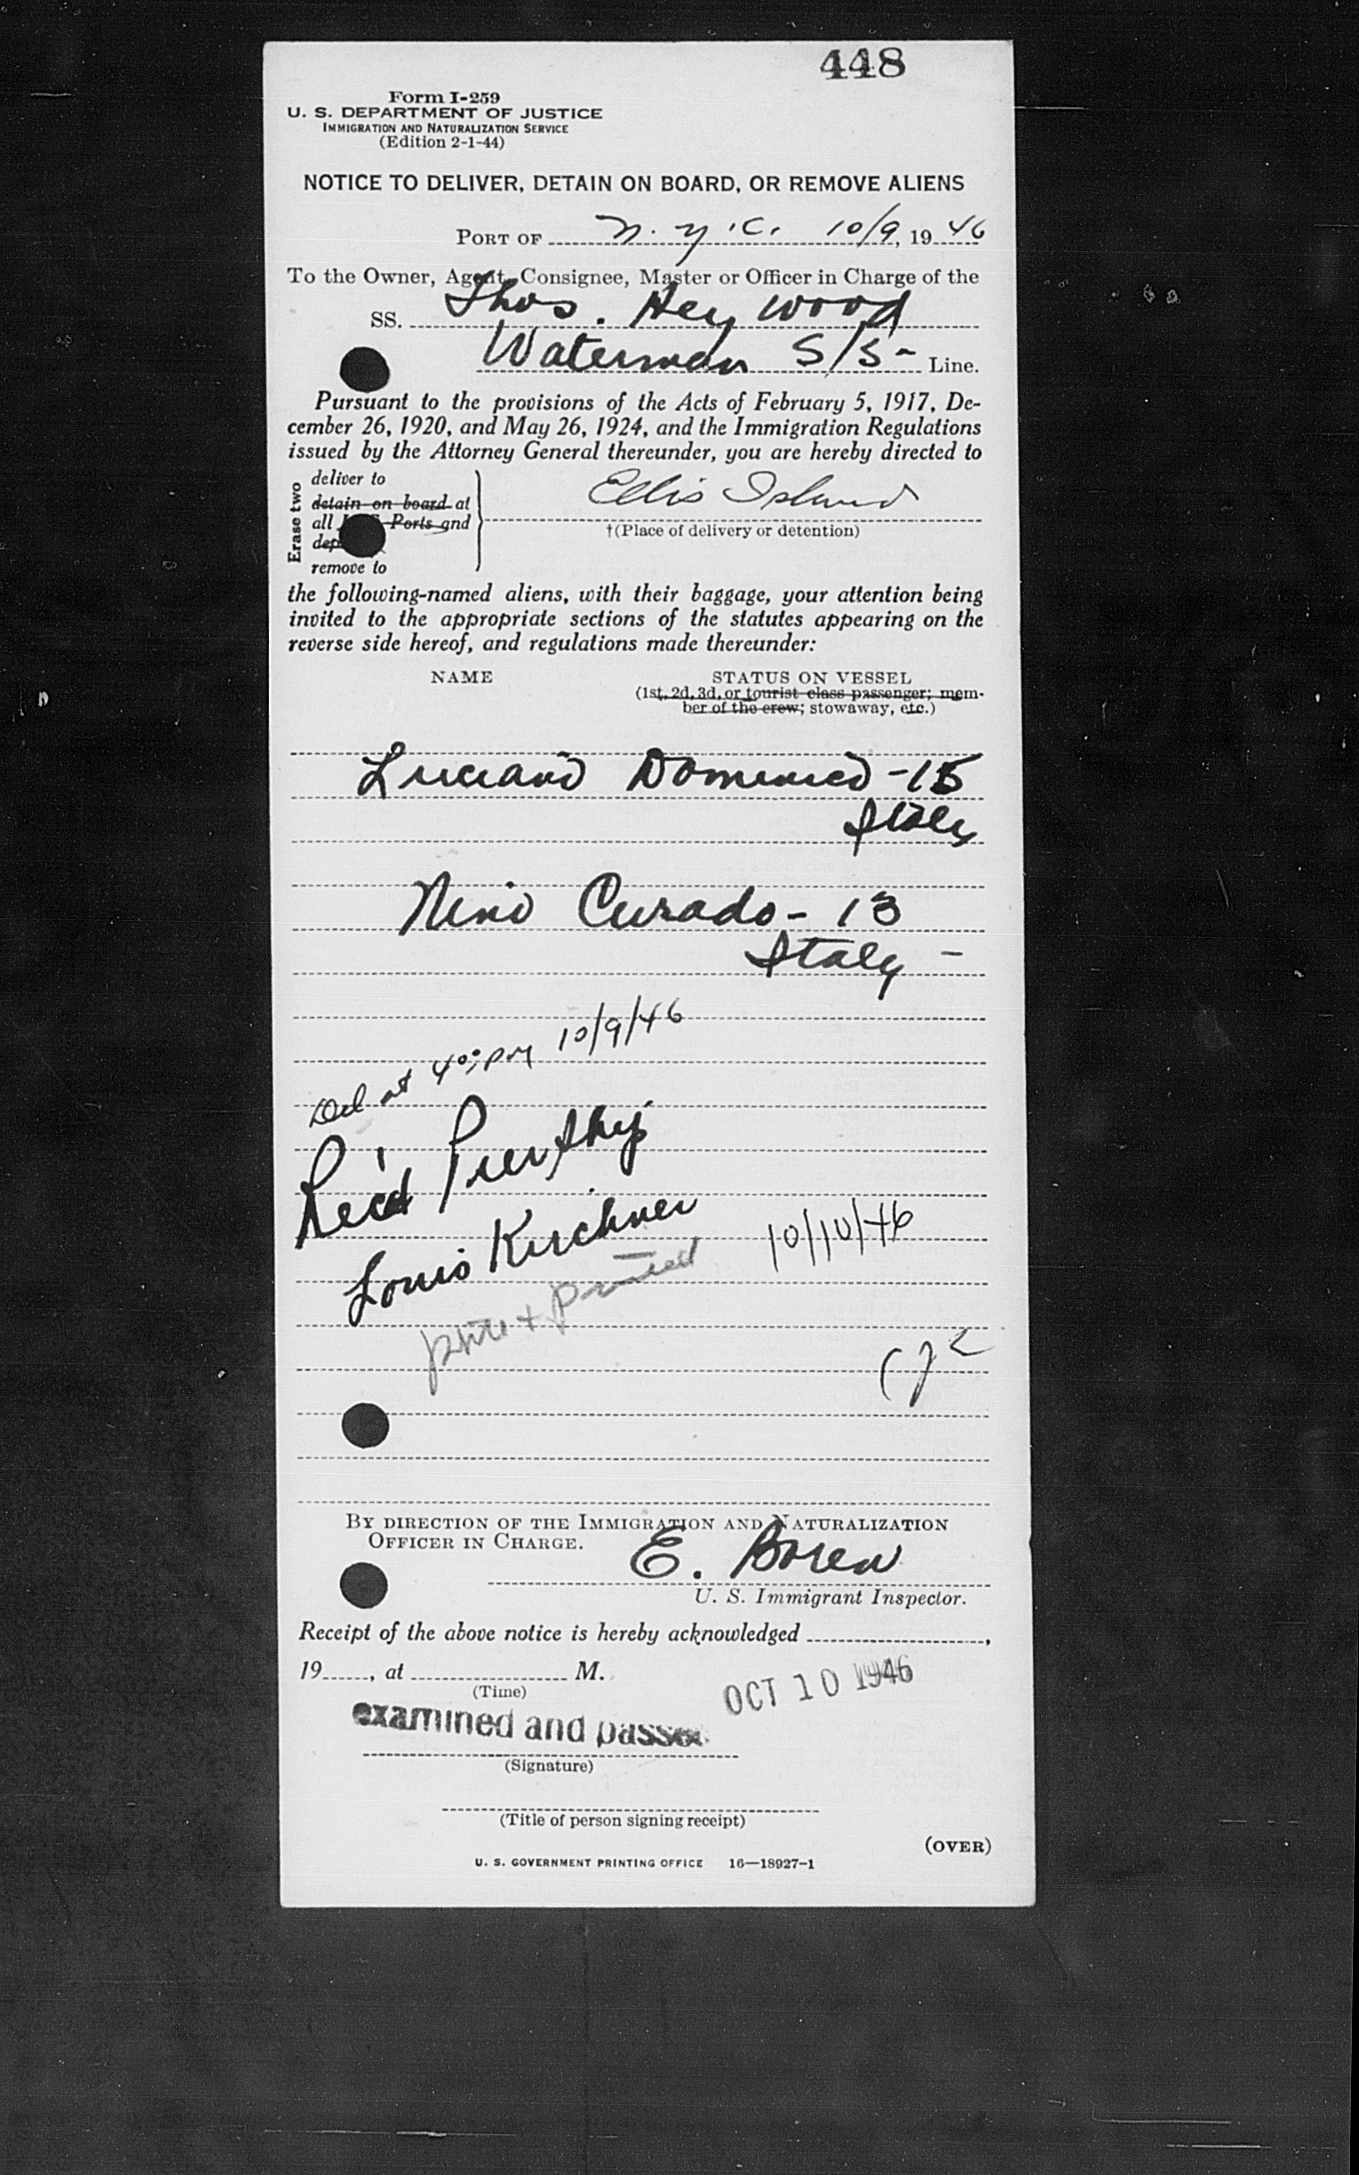 448
Form I-259
U. S. DEPARTMENT OF JUSTICE
IMMIGRATION AND NATURALIZATION SERVICE
(Edition 2-1-44)
NOTICE TO DELIVER, DETAIN ON BOARD, OR REMOVE ALIENS
PORT OF N.Y.C. 10/9, 1946
To the Owner, Agent, Consignee, Master or Officer in Charge of the
SS. Thos. Heywood
Waterman S/S- Line.
Pursuant to the provisions of the Acts of February 5, 1917, De-
cember 26, 1920, and May 26, 1924, and the Immigration Regulations
issued by the Attorney General thereunder, you are hereby directed to
Erase two
deliver to
detain on board at
all Ports and
remove to
Ellis Island
†(Place of delivery or detention)
the following-named aliens, with their baggage, your attention being
invited to the appropriate sections of the statutes appearing on the
reverse side hereof, and regulations made thereunder:
NAME STATUS ON VESSEL
(1st, 2d, 3d, or tourist class passenger; mem-
ber of the crew; stowaway, etc.)
Luciano Domenico - 15
Italy
Nino Curado - 13
Italy -
Del at 4 00 PM 10/9/46
Rec'd
Louis Kirchner 10/10/46
BY DIRECTION OF THE IMMIGRATION AND NATURALIZATION
OFFICER IN CHARGE.
E. Boren
U. S. Immigrant Inspector.
Receipt of the above notice is hereby acknowledged ,
19 , at M.
(Time)
OCT 10 1946
examined and passed
(Signature)
(Title of person signing receipt)
(OVER)
U. S. GOVERNMENT PRINTING OFFICE 16—18927-1